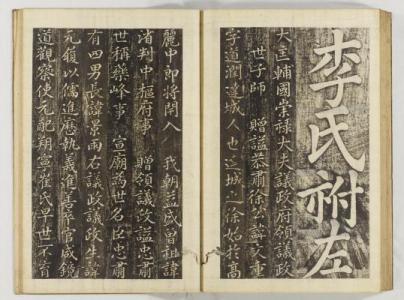 李氏祔左
大匡輔國崇祿大夫議政府領議政
世子師 贈謚恭肅徐公諱文重
字道潤達城人也達城之徐始於高
麗中郎將閈入 我朝益盛曾祖諱
渻判中樞府事 贈領議政謚忠肅
世稱藥峰事 宣廟為世名臣忠肅
有四男長諱景雨右議政議政生諱
元履以儒進歷執義進善卒官咸鏡
道觀察使元配朔寧崔氏早世不育